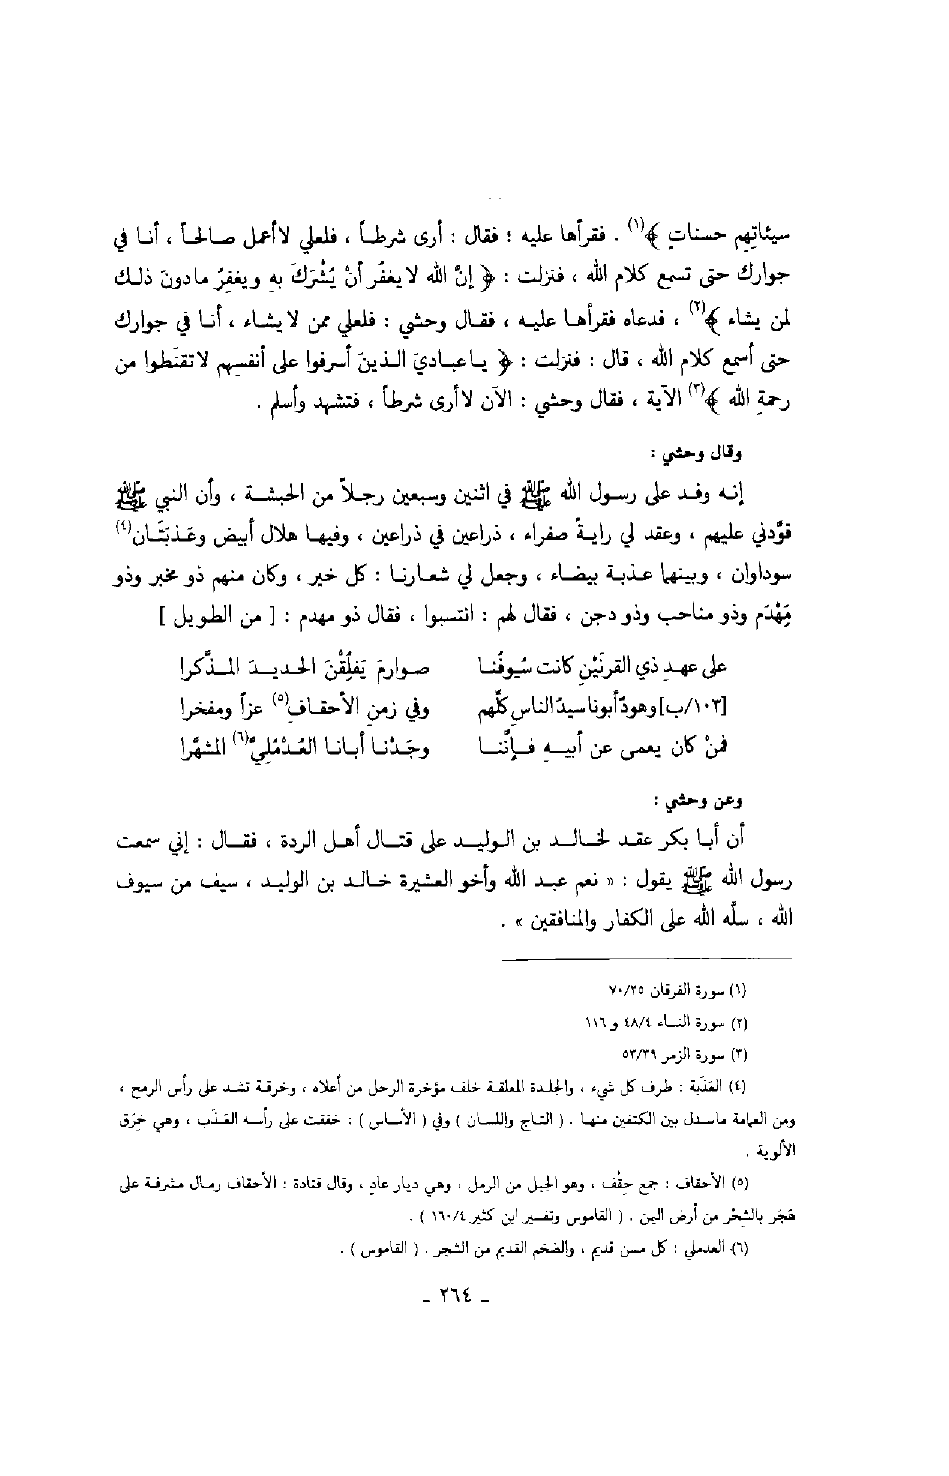 سيئاتِهِم حسناتٍ ﴾(١) . فقرأها عليه ؛ فقال : أرى شرطاً ، فلعلي لاأعمل صالحاً ، أنا في
جوارك حتى تسمع كلام الله ، فنزلت : ﴿ إنَّ الله لايغفُر أنْ يُشْرَكَ بهِ ويغفِرُ مادونَ ذلك
لمن يشاء ﴾(٢) ، فدعاه فقرأها عليه ، فقال وحشي : فلعلي ممن لايشاء ، أنا في جوارك
حتى أسمع كلام الله ، قال : فنزلت : ﴿ ياعباديَ الذينَ أسرفوا على أنفسهم لاتقنَطوا من
رحمةِ الله ﴾(٣) الآية ، فقال وحشي : الآن لاأرى شرطاً ، فتشهد وأسلم .
وقال وحشي :
إنه وفد على رسول الله ﷺ في اثنين وسبعين رجلاً من الحبشة ، وأن النبي ﷺ
قوَّدني عليهم ، وعقد لي رايةً صفراء ، ذراعين في ذراعين ، وفيها هلال أبيض وعَذَبَتَان(٤)
سوداوان ، وبينهما عذبة بيضاء ، وجعل لي شعارنا : كل خير ، وكان منهم ذو مخبر وذو
مِهْدَم وذو مناحب وذو دجن ، فقال لهم : انتسبوا ، فقال ذو مهدم : [ من الطويل ]
على عهدِ ذي القرنَيْنِ كانت سُيوفُنا صوارمَ يَفلِقْنَ الحديدَ المذَّكرا
[١٠٣/ب] وهودٌ أبونا سيدُ الناسِ كلِّهم وفي زمنِ الأحقافِ(٥) عزاً ومفخرا
فمَنْ كان يعمى عن أبيهِ فإنَّنا وجَدْنا أبانا العُدْمُليَّ(٦) المشهَّرا
وعن وحشي :
أن أبا بكر عقد لخالد بن الوليد على قتال أهل الردة ، فقال : إني سمعت
رسول الله ﷺ يقول : « نعم عبد الله وأخو العشيرة خالد بن الوليد ، سيف من سيوف
الله ، سلَّه الله على الكفار والمنافقين » .
(١) سورة الفرقان ٧٠/٢٥
(٢) سورة النساء ٤٨/٤ و ١١٦
(٣) سورة الزمر ٥٣/٣٩
(٤) العَذَبة : طرف كل شيء ، والجلدة المعلقة خلف مؤخرة الرحل من أعلاه ، وخرقة تشد على رأس الرمح ،
ومن العمامة ماسدل بين الكتفين منها . ( التاج واللسان ) وفي ( الأساس ) : خفقت على رأسه العَذَب ، وهي خِرَق
الألوية .
(٥) الأحقاف : جمع حِقْف ، وهو الجبل من الرمل ، وهي ديار عادٍ ، وقال قتادة : الأحقاف رمال مشرفة على
هَجَر بالشِّحْر من أرض اليمن . ( القاموس وتفسير ابن كثير ١٦٠/٤ ) .
(٦) العدملي : كل مسن قديم ، والضخم القديم من الشجر . ( القاموس ) .
- ٢٦٤ -